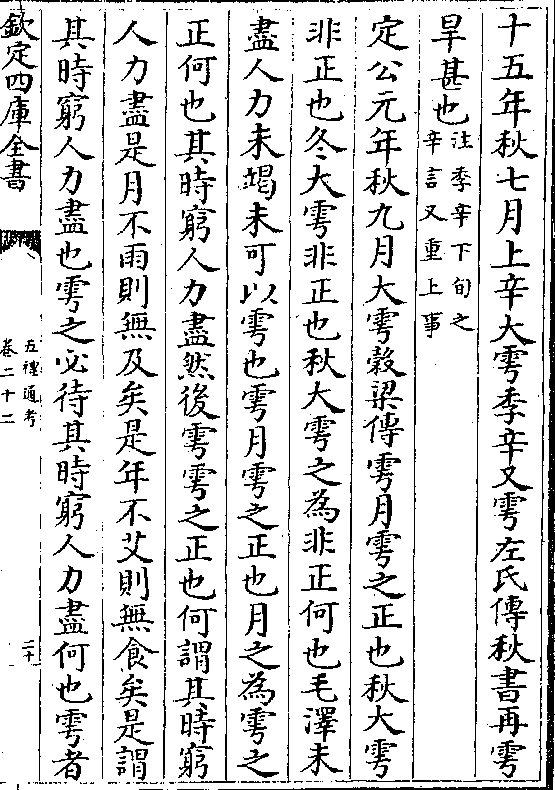 十五年秋七月上辛大雩季辛又雩左氏傳秋書再雩
旱甚也注季辛下旬之
辛言又重上事
定公元年秋九月大雩穀梁傳雩月雩之正也秋大雩
非正也冬大雩非正也秋大雩之為非正何也毛澤未
盡人力未竭未可以雩也雩月雩之正也月之為雩之
正何也其時窮人力盡然後雩雩之正也何謂其時窮
人力盡是月不雨則無及矣是年不艾則無食矣是謂
其時窮人力盡也雩之必待其時窮人力盡何也雩者
欽定四庫全書
五禮通考
卷二十二
二十